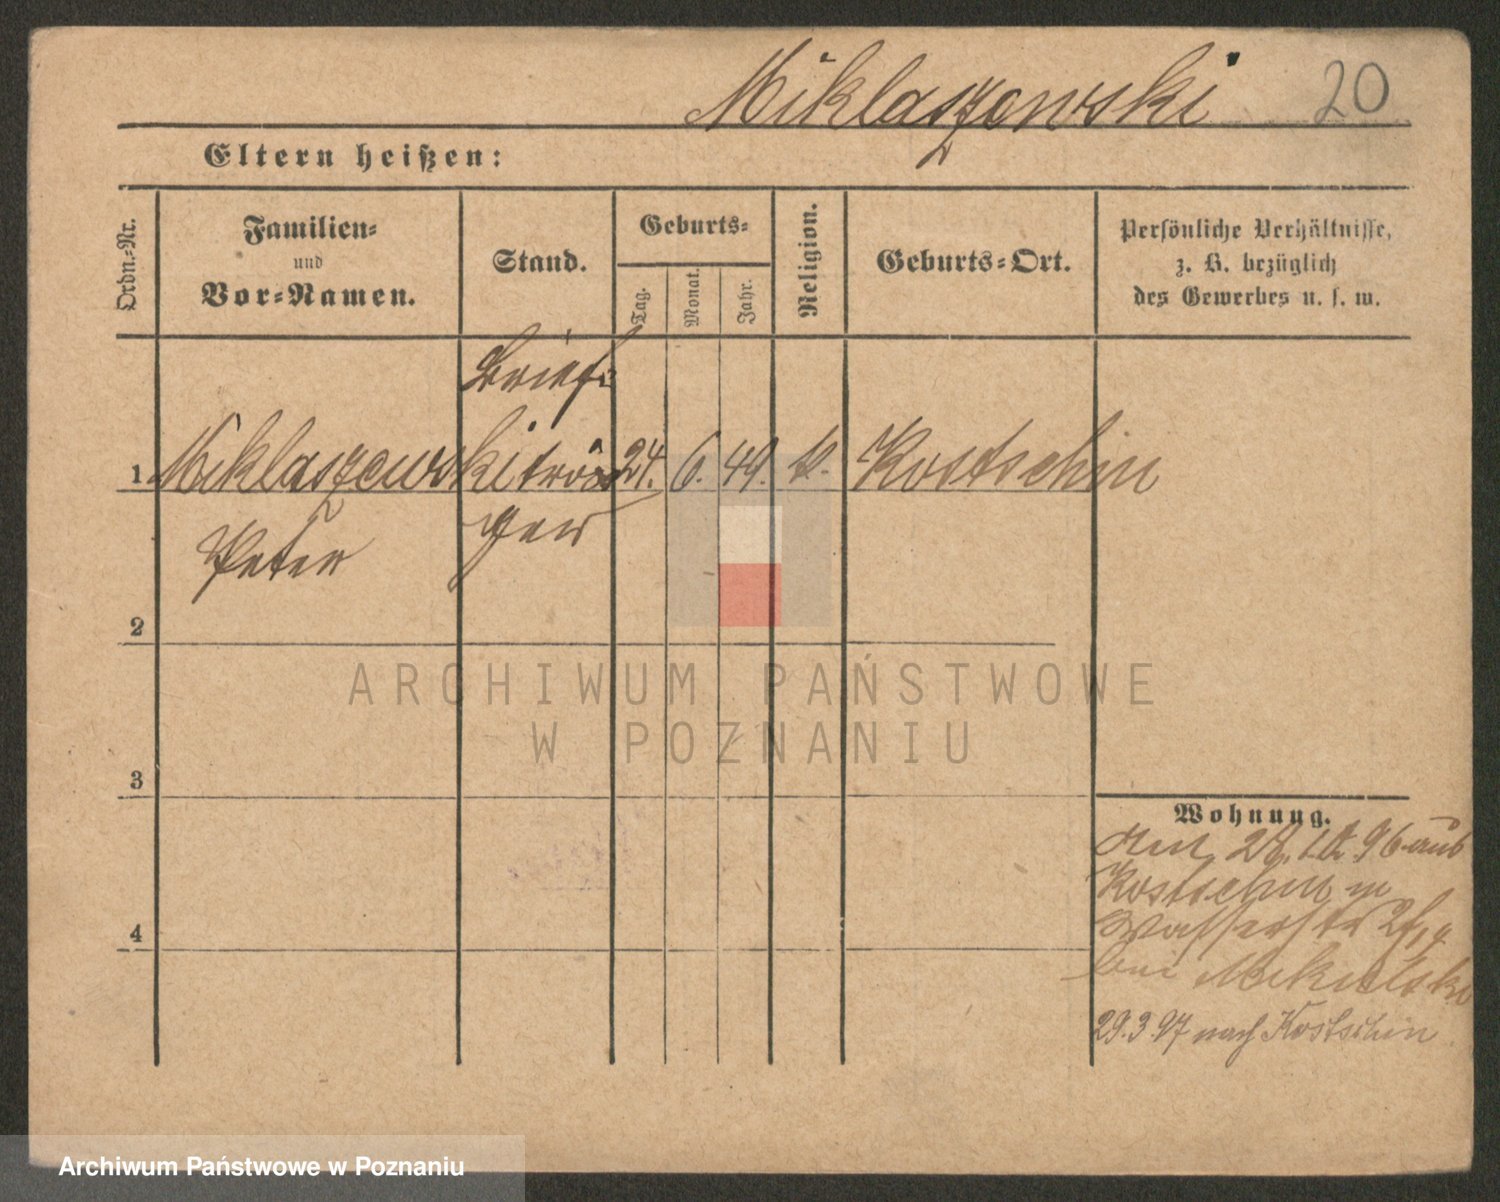 Miklaszewski 20
Eltern heißen:
Ordn.-Nr.
Familien-
und
Vor-Namen.
Stand.
Geburts-
Tag.
Monat.
Jahr.
Religion.
Geburts-Ort.
Persönliche Verhältnisse,
z. B. bezüglich
des Gewerbes u. s. w.
Brief-
1 Miklaszewski träe 24. 6. 49. k. Kostschin
Peter ger
2
3
4
Wohnung.
Am 28. 10. 96 aus
Kostschin in
Wasserstr
bei Mikulski
29.3.97 nach Kostschin
ARCHIWUM PAŃSTWOWE
W POZNANIU
Archiwum Państwowe w Poznaniu